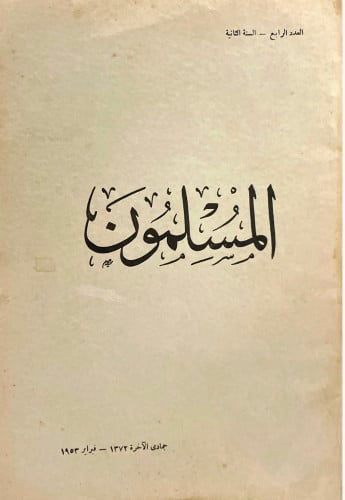 العدد الرابع – السنة الثانية
المُسْلِمُونَ
جمادى الآخرة ١٣٧٢ – فبراير ١٩٥٣